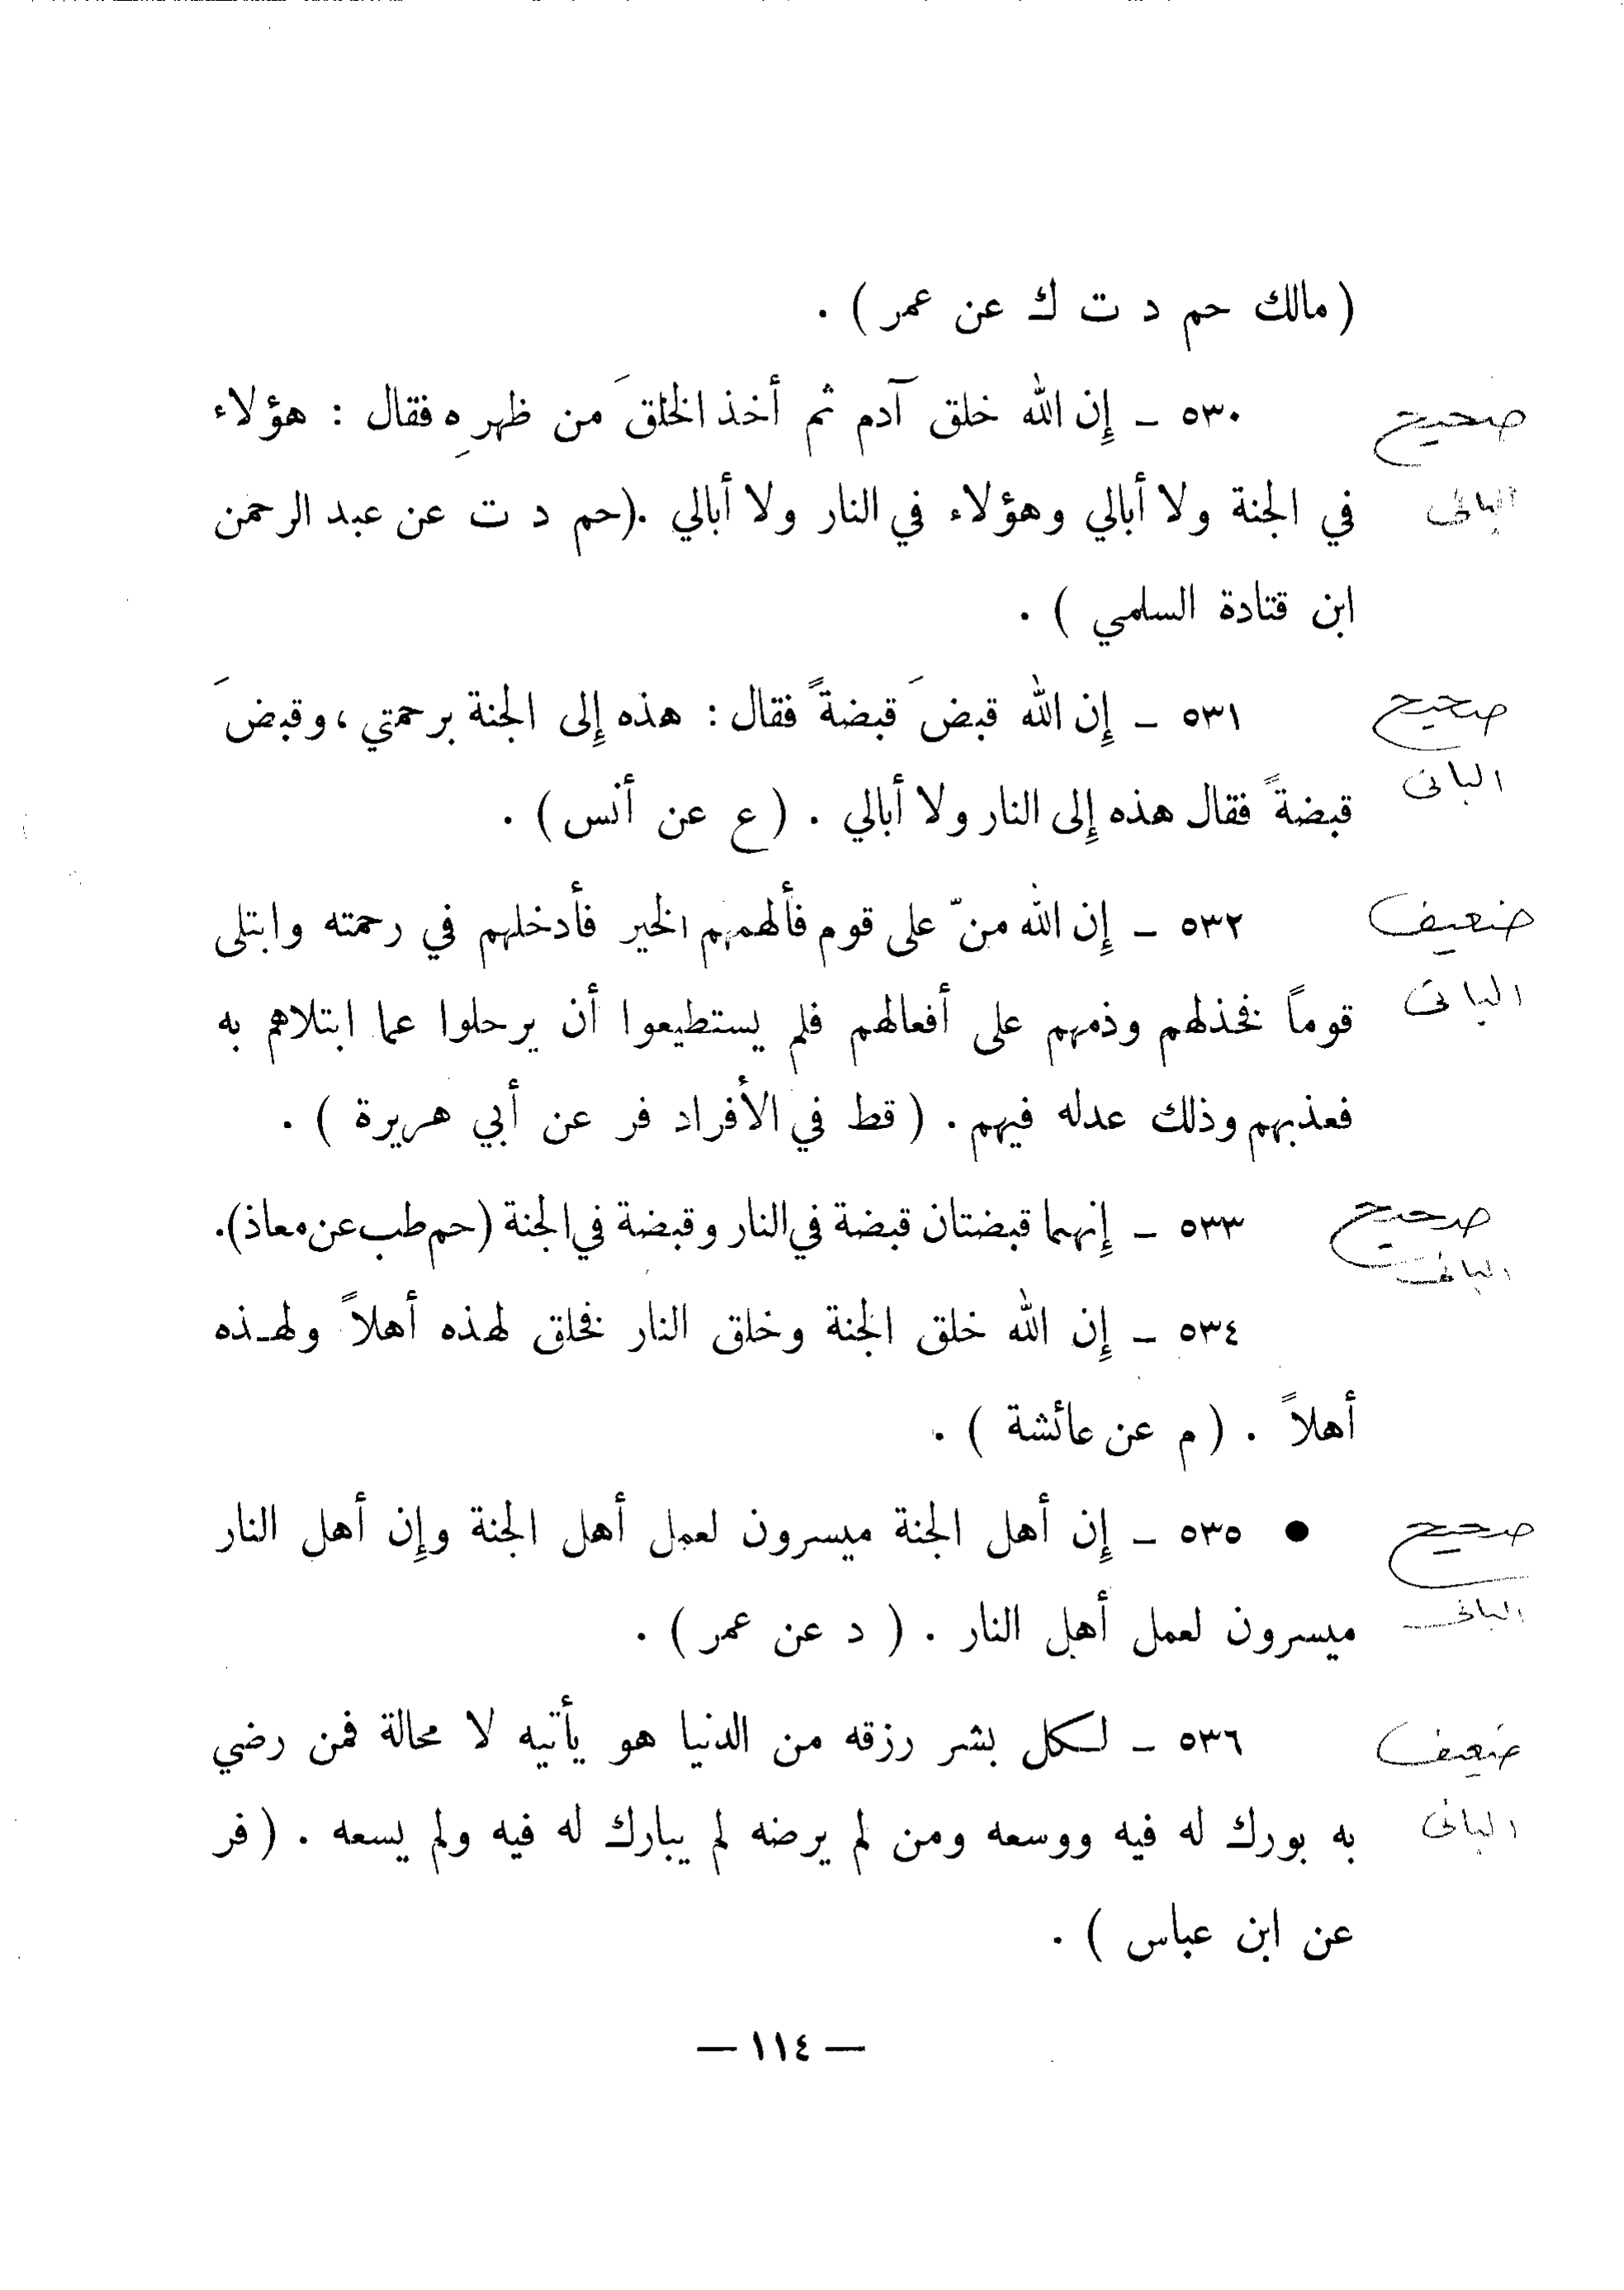 ( مالك حم د ت ك عن عمر ) .
٥٣٠ ـ إِن الله خلق آدم ثم أخذ الخلقَ من ظهرِه فقال : هؤلاء
صحيح
في الجنة ولا أبالي وهؤلاء في النار ولا أبالي .(حم د ت عن عبد الرحمن
البانى
ابن قتادة السلمي ) .
٥٣١ ـ إِن الله قبضَ قبضةً فقال : هذه إِلى الجنة برحمتي ، وقبضَ
صحيح
قبضةً فقال هذه إِلى النار ولا أبالي . ( ع عن أنس ) .
البانى
٥٣٢ ـ إِن الله منّ على قوم فألهمهم الخير فأدخلهم في رحمته وابتلى
ضعيف
قوماً فخذلهم وذمهم على أفعالهم فلم يستطيعوا أن يرحلوا عما ابتلاهم به
البانى
فعذبهم وذلك عدله فيهم . ( قط في الأفراد فر عن أبي هريرة ) .
٥٣٣ ـ إِنهما قبضتان قبضة في النار وقبضة في الجنة (حم طب عن معاذ).
صحيح
البانى
٥٣٤ ـ إِن الله خلق الجنة وخلق النار فخلق لهذه أهلاً ولهـذه
أهلاً . ( م عن عائشة ) .
● ٥٣٥ ـ إِن أهل الجنة ميسرون لعمل أهل الجنة وإِن أهل النار
صحيح
ميسرون لعمل أهل النار . ( د عن عمر ) .
البانى
٥٣٦ ـ لـكل بشر رزقه من الدنيا هو يأتيه لا محالة فمن رضي
ضعيف
به بورك له فيه ووسعه ومن لم يرضه لم يبارك له فيه ولم يسعه . ( فر
البانى
عن ابن عباس ) .
— ١١٤ —